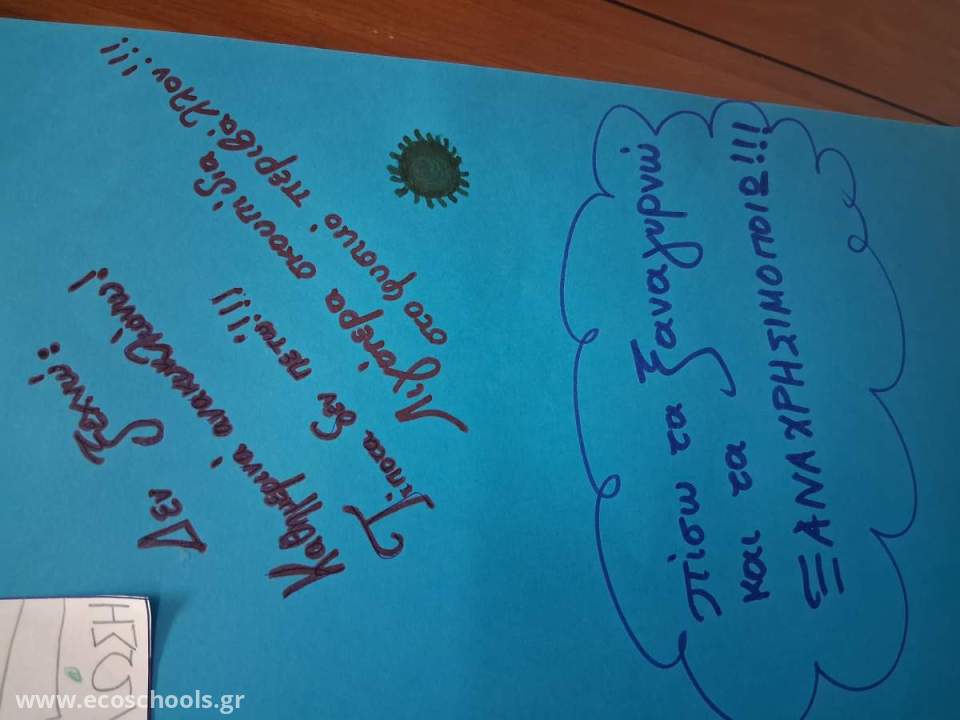 Δεν ξεχνώ:
Καθημερινά ανακυκλώνω!
Τίποτα δεν πετώ!!!!
Λιγότερα σκουπίδια
στο φυσικό περιβάλλον!!!
πίσω τα ξαναγυρνώ
και τα
ΞΑΝΑΧΡΗΣΙΜΟΠΟΙΩ!!!
www.ecoschools.gr